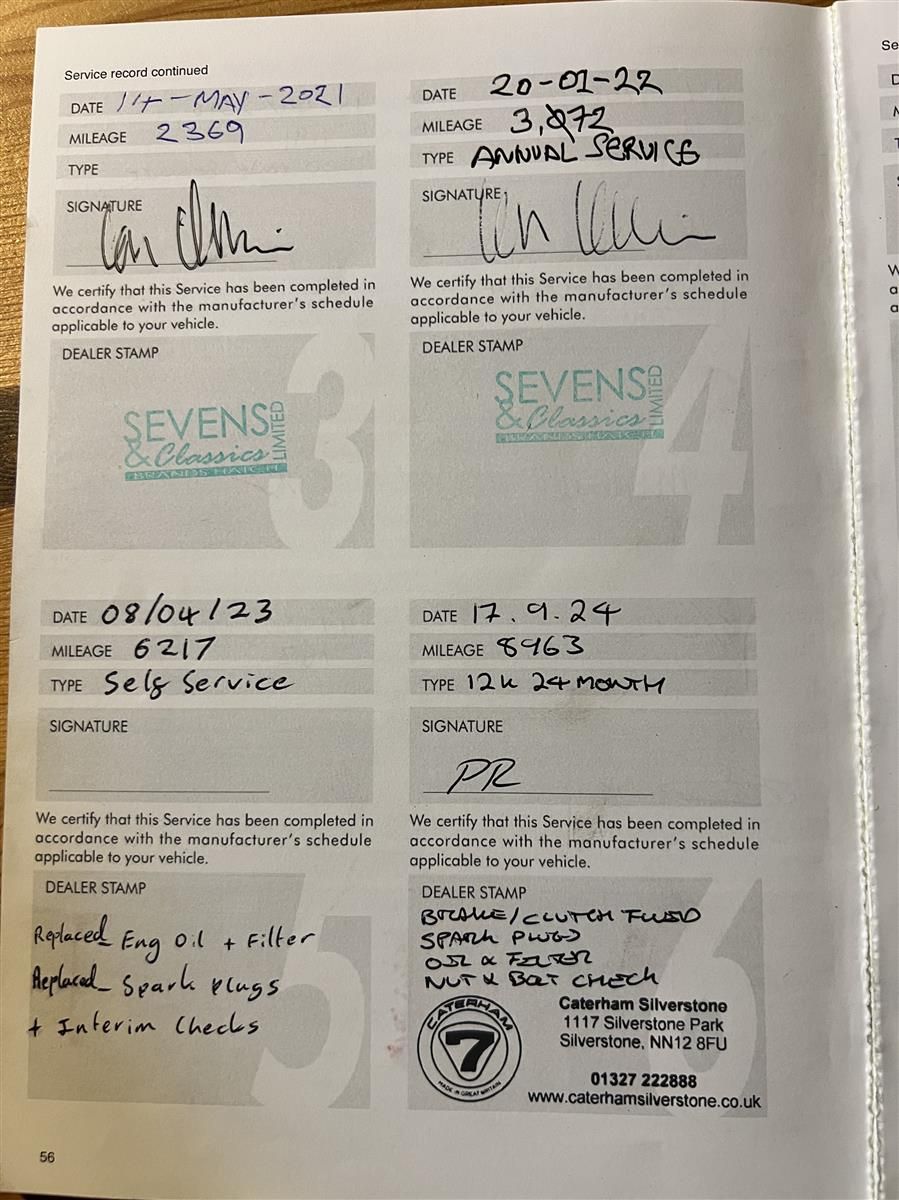 Service record continued
DATE 14-MAY-2021
MILEAGE 2369
TYPE
SIGNATURE
We certify that this Service has been completed in
accordance with the manufacturer's schedule
applicable to your vehicle.
DEALER STAMP
SEVENS
& Classics
LIMITED
BRANDS HATCH
3
DATE 20-01-22
MILEAGE
TYPE ANNUAL SERVICE
SIGNATURE
We certify that this Service has been completed in
accordance with the manufacturer's schedule
applicable to your vehicle.
DEALER STAMP
SEVENS
& Classics
LIMITED
BRANDS HATCH
4
DATE 08/04/23
MILEAGE 6217
TYPE Self Service
SIGNATURE
We certify that this Service has been completed in
accordance with the manufacturer's schedule
applicable to your vehicle.
DEALER STAMP
Replaced Eng Oil + Filter
Replaced Spark Plugs
+ Interim Checks
5
DATE 17.9.24
MILEAGE 8963
TYPE 12K 24 MONTH
SIGNATURE
PR
We certify that this Service has been completed in
accordance with the manufacturer's schedule
applicable to your vehicle.
DEALER STAMP
BRAKE/CLUTCH FLUID
SPARK PLUGS
OIL & FILTER
NUT & BOLT CHECK
6
CATERHAM
7
MADE IN GREAT BRITAIN
Caterham Silverstone
1117 Silverstone Park
Silverstone, NN12 8FU
01327 222888
www.caterhamsilverstone.co.uk
56